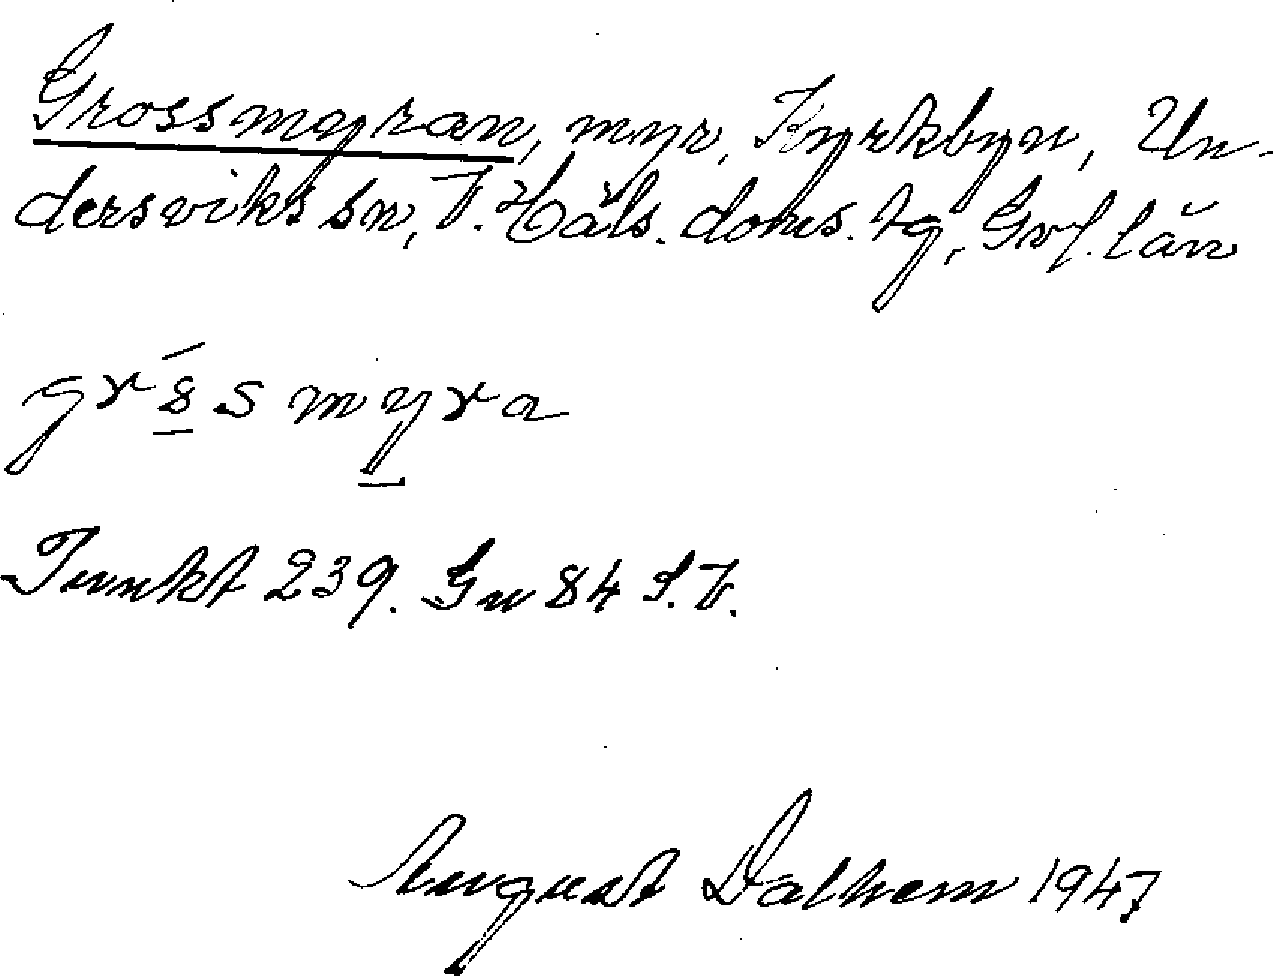 Grossmyran, myr, Kyrkbyn, Un-
dersviks sn, V. Häls. doms. tg, Gvl. län
grs s myra
Punkt 239. Gu 84 S.V.
August Dalhem 1947